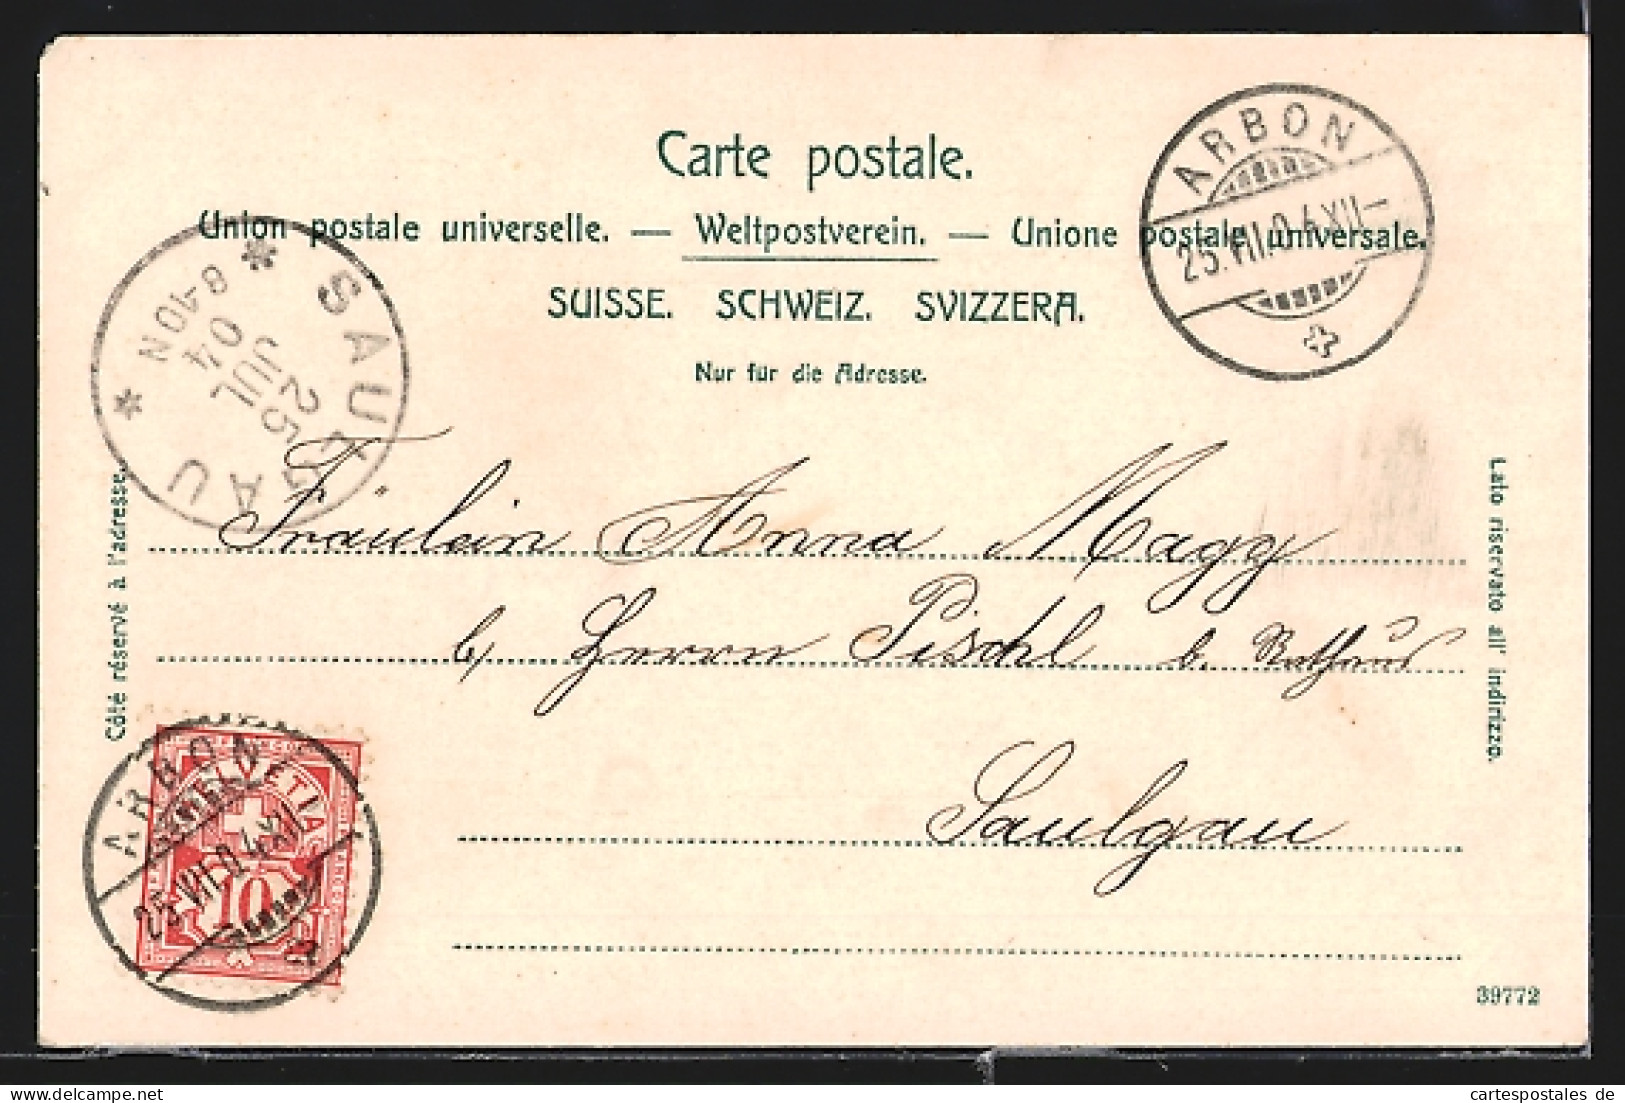 Carte postale.
Union postale universelle. — Weltpostverein. — Unione postale universale.
SUISSE. SCHWEIZ. SVIZZERA.
Nur für die Adresse.
ARBON
25.VII.04.XII–
SAULGAU
25
JUL
04
8-40N
Côté réservé à l'adresse.
Lato riservato all' indirizzo.
Fräulein Anna Magg
b/ Herrn Pischl b. Rathaus
Saulgau
ARBON
25.VII.04.XII–
HELVETIA
10
39772
cartespostales de